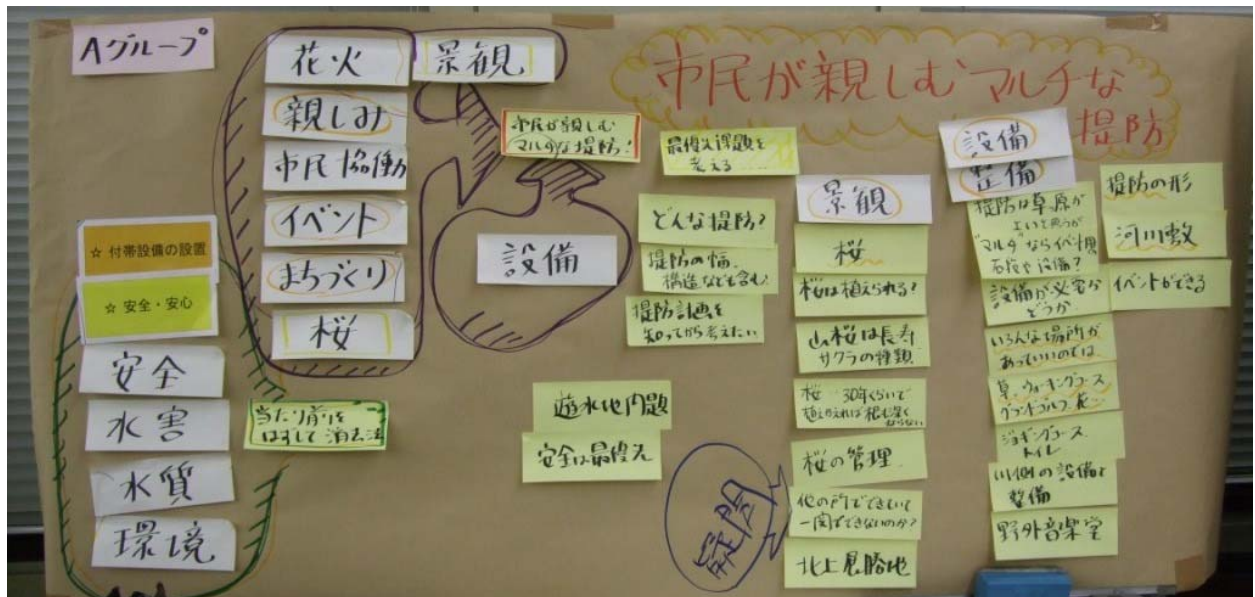 Aグループ
市民が親しむマルチな
堤防
花火
親しみ
市民協働
イベント
まちづくり
桜
景観
☆ 付帯設備の設置
☆ 安全・安心
安全
水害
水質
環境
当たり前を
はずして 消去法
設備
市民が親しむ
マルチな堤防!
最優先課題を
考える……
どんな堤防?
堤防の幅、
構造なども含む
堤防計画を
知ってから考えたい
遊水地内問題
安全は最優先
疑問
景観
桜
桜は植えられる?
山桜は長寿
サクラの種類
桜 30年くらいで
植えかえれば根も深く
ならない
桜の管理
他の所でできていて
一関でできないのか?
北上展勝地
設備
整備
堤防は草原が
よいと思うが
"マルチ"ならイベント用の
設備?
設備が必要か
どうか
いろんな場所が
あっていいのでは
草、ウォーキングコース
グランドゴルフ、花…
ジョギングコース
トイレ
川側の設備と
整備
野外音楽堂
堤防の形
河川敷
イベントができる